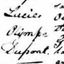 Lucie
Olymp=
Dupont.